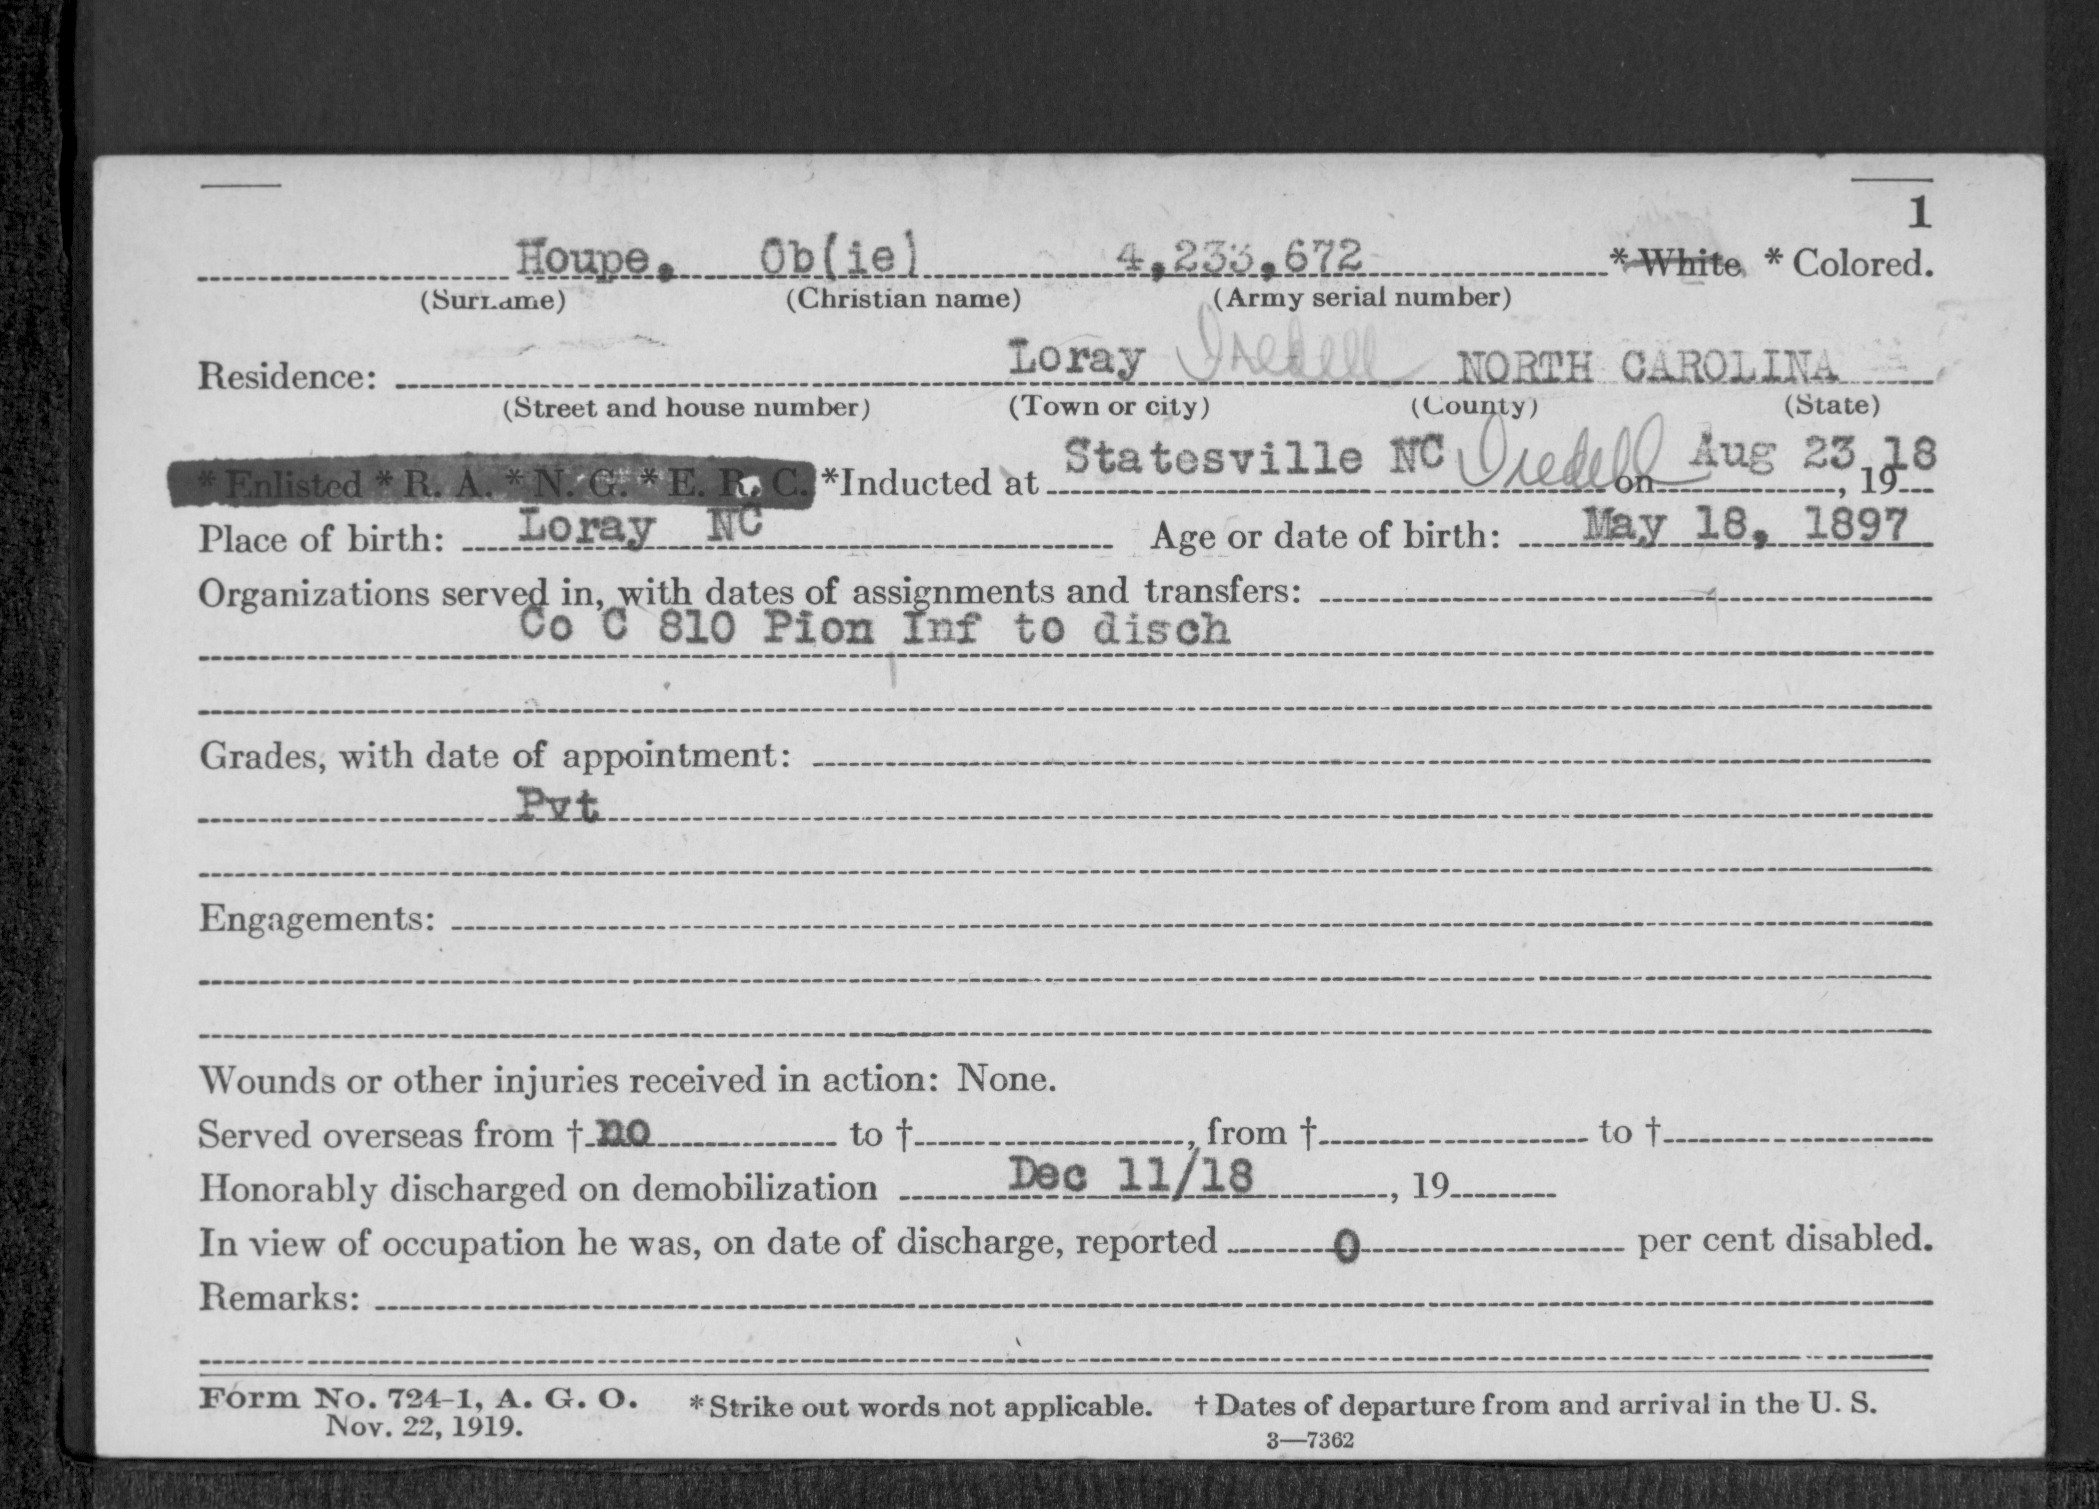 1
Houpe, Ob(ie) 4,233,672 * White * Colored.
(Surname) (Christian name) (Army serial number)
Residence: Loray Iredell NORTH CAROLINA
(Street and house number) (Town or city) (County) (State)
* Enlisted * R. A. * N. G. * E. R. C. *Inducted at Statesville NC Iredell on Aug 23, 1918
Place of birth: Loray NC Age or date of birth: May 18, 1897
Organizations served in, with dates of assignments and transfers:
Co C 810 Pion Inf to disch
Grades, with date of appointment:
Pvt
Engagements:
Wounds or other injuries received in action: None.
Served overseas from † no to †, from † to †
Honorably discharged on demobilization Dec 11/18, 19
In view of occupation he was, on date of discharge, reported 0 per cent disabled.
Remarks:
Form No. 724-1, A. G. O. *Strike out words not applicable. †Dates of departure from and arrival in the U. S.
Nov. 22, 1919.
3—7362